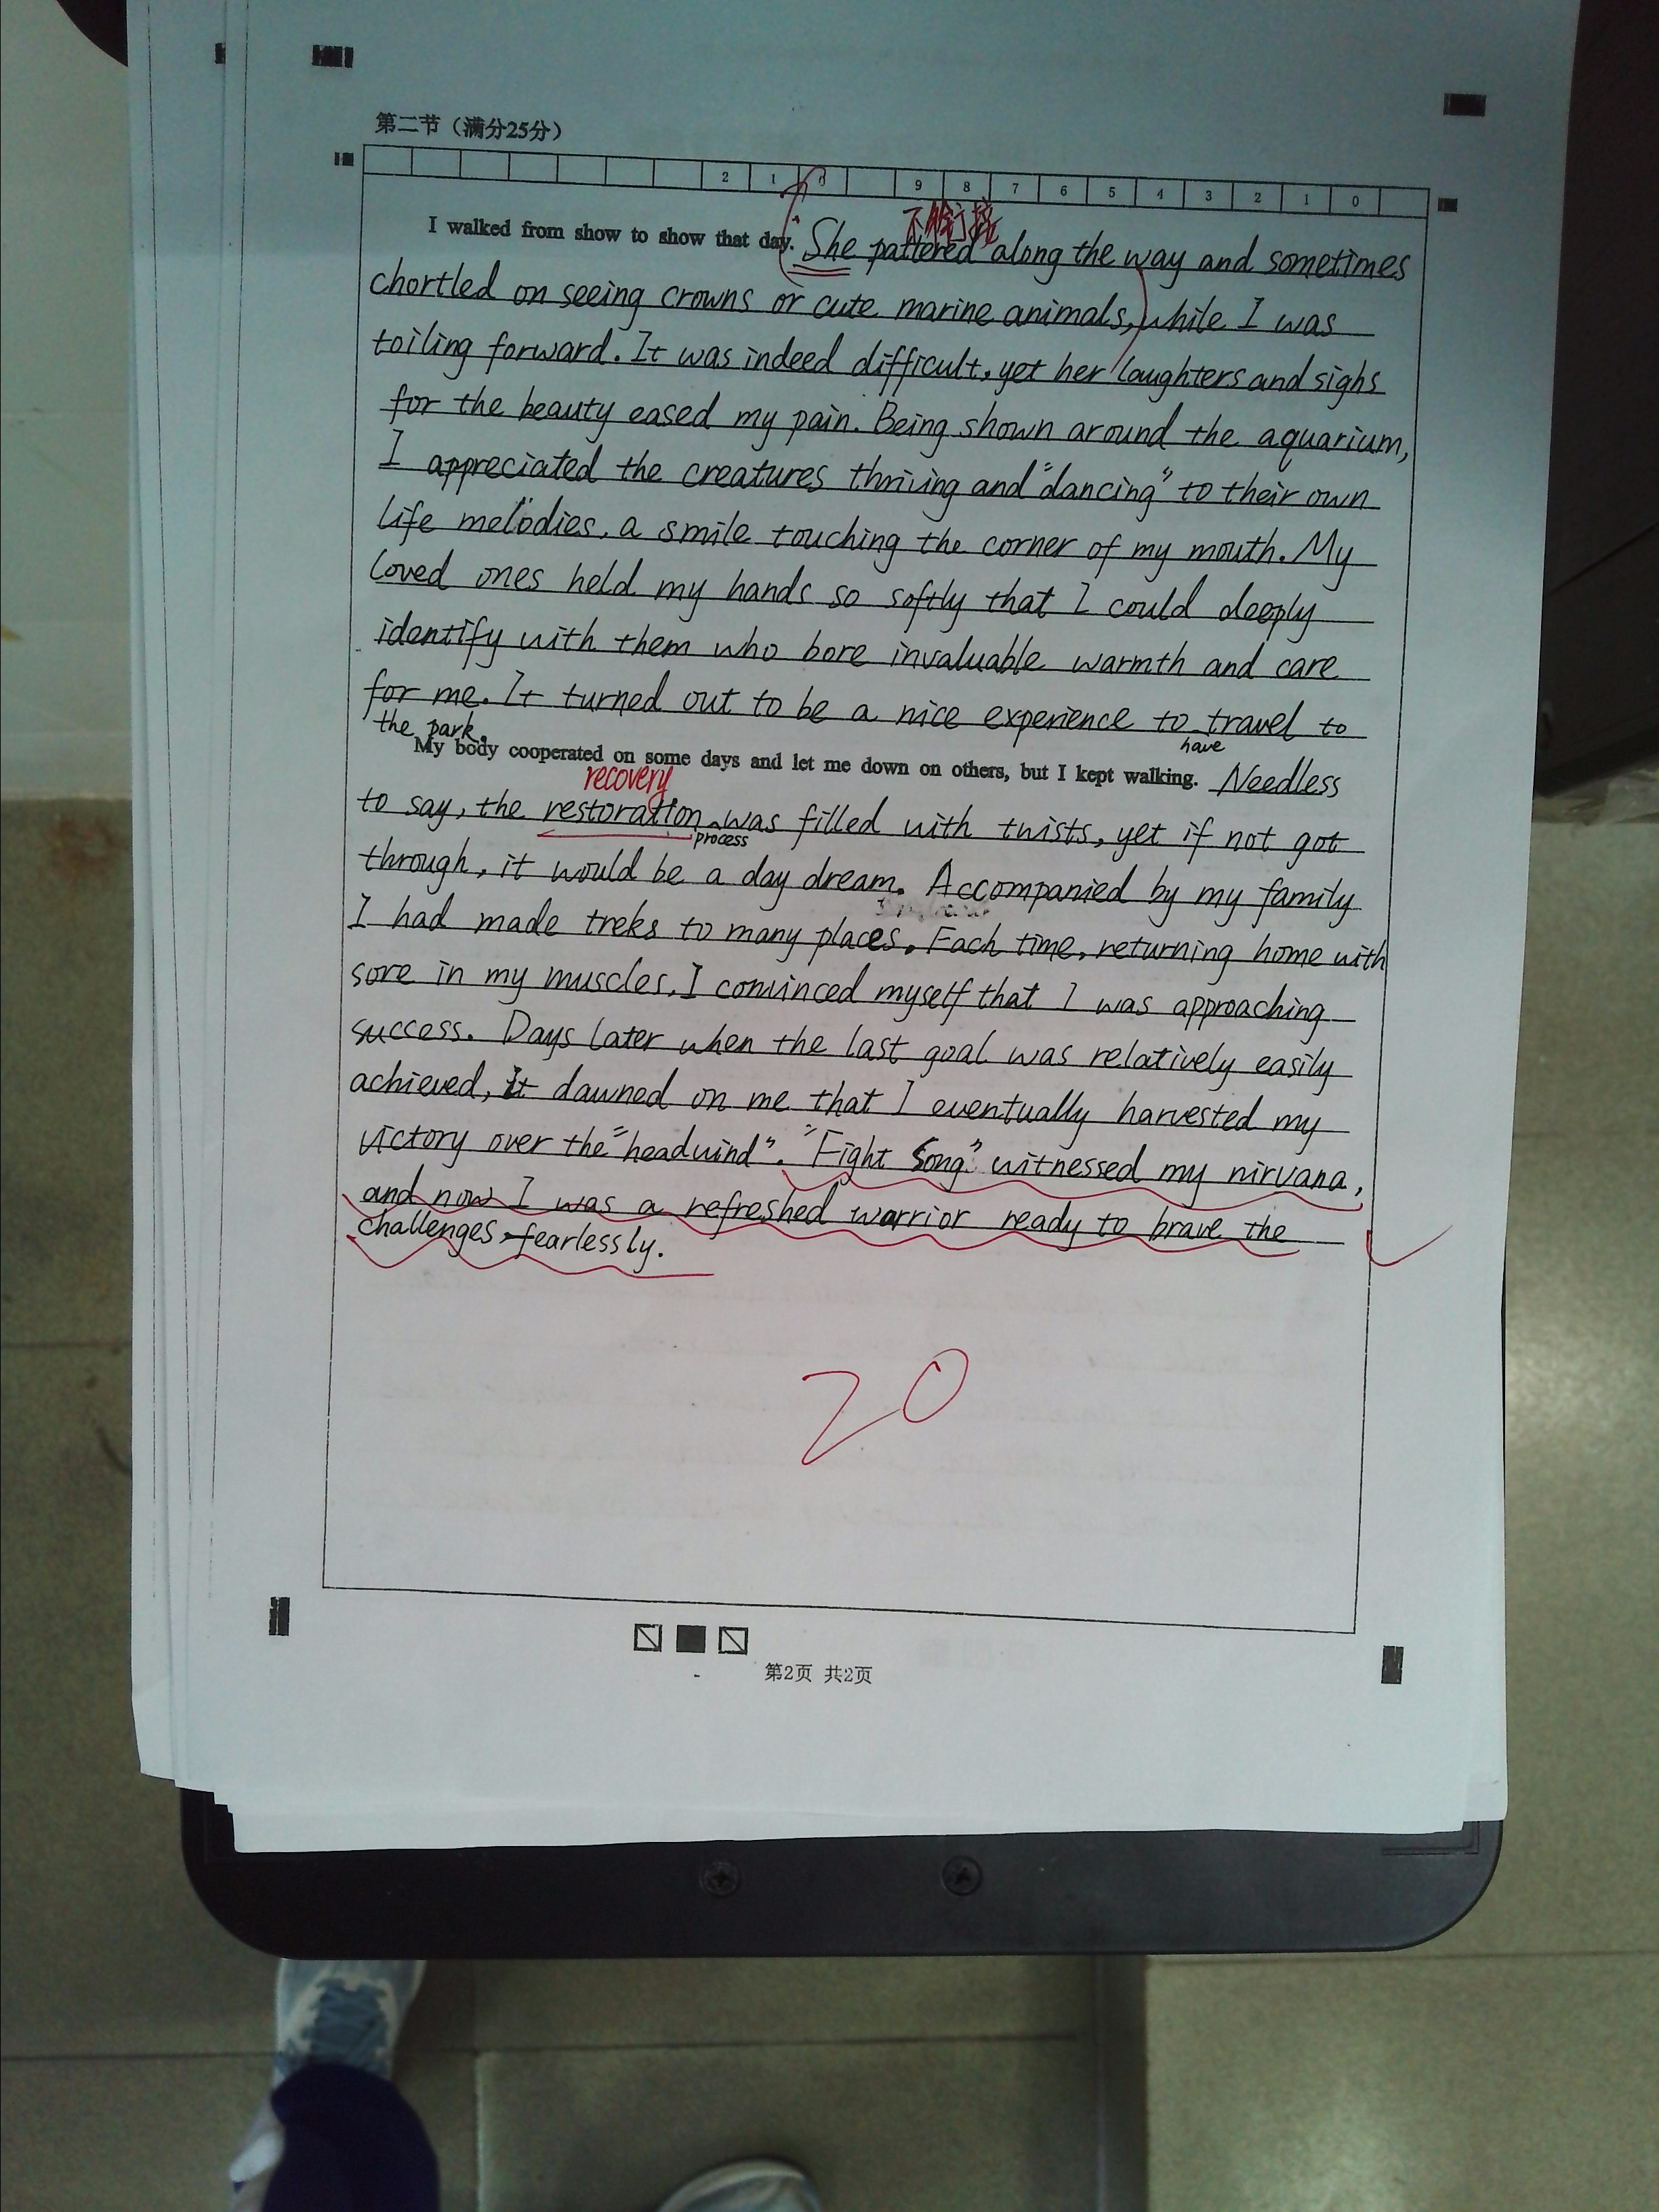 第二节（满分25分）
2 1 0 9 8 7 6 5 4 3 2 1 0
不能衔接
I walked from show to show that day. She pattered along the way and sometimes
chortled on seeing crowns or cute marine animals, while I was
toiling forward. It was indeed difficult, yet her laughters and sighs
for the beauty eased my pain. Being shown around the aquarium,
I appreciated the creatures thriving and "dancing" to their own
life melodies, a smile touching the corner of my mouth. My
loved ones held my hands so softly that I could deeply
identify with them who bore invaluable warmth and care
for me. It turned out to be a nice experience to travel to
the park.
have
My body cooperated on some days and let me down on others, but I kept walking. Needless
recovery
to say, the restoration was filled with twists, yet if not got
process
through, it would be a day dream. Accompanied by my family
I had made treks to many places. Each time, returning home with
sore in my muscles, I convinced myself that I was approaching
success. Days later when the last goal was relatively easily
achieved, It dawned on me that I eventually harvested my
victory over the "headwind". "Fight Song" witnessed my nirvana,
and now I was a refreshed warrior ready to brave the
challenges fearlessly.
20
第2页 共2页